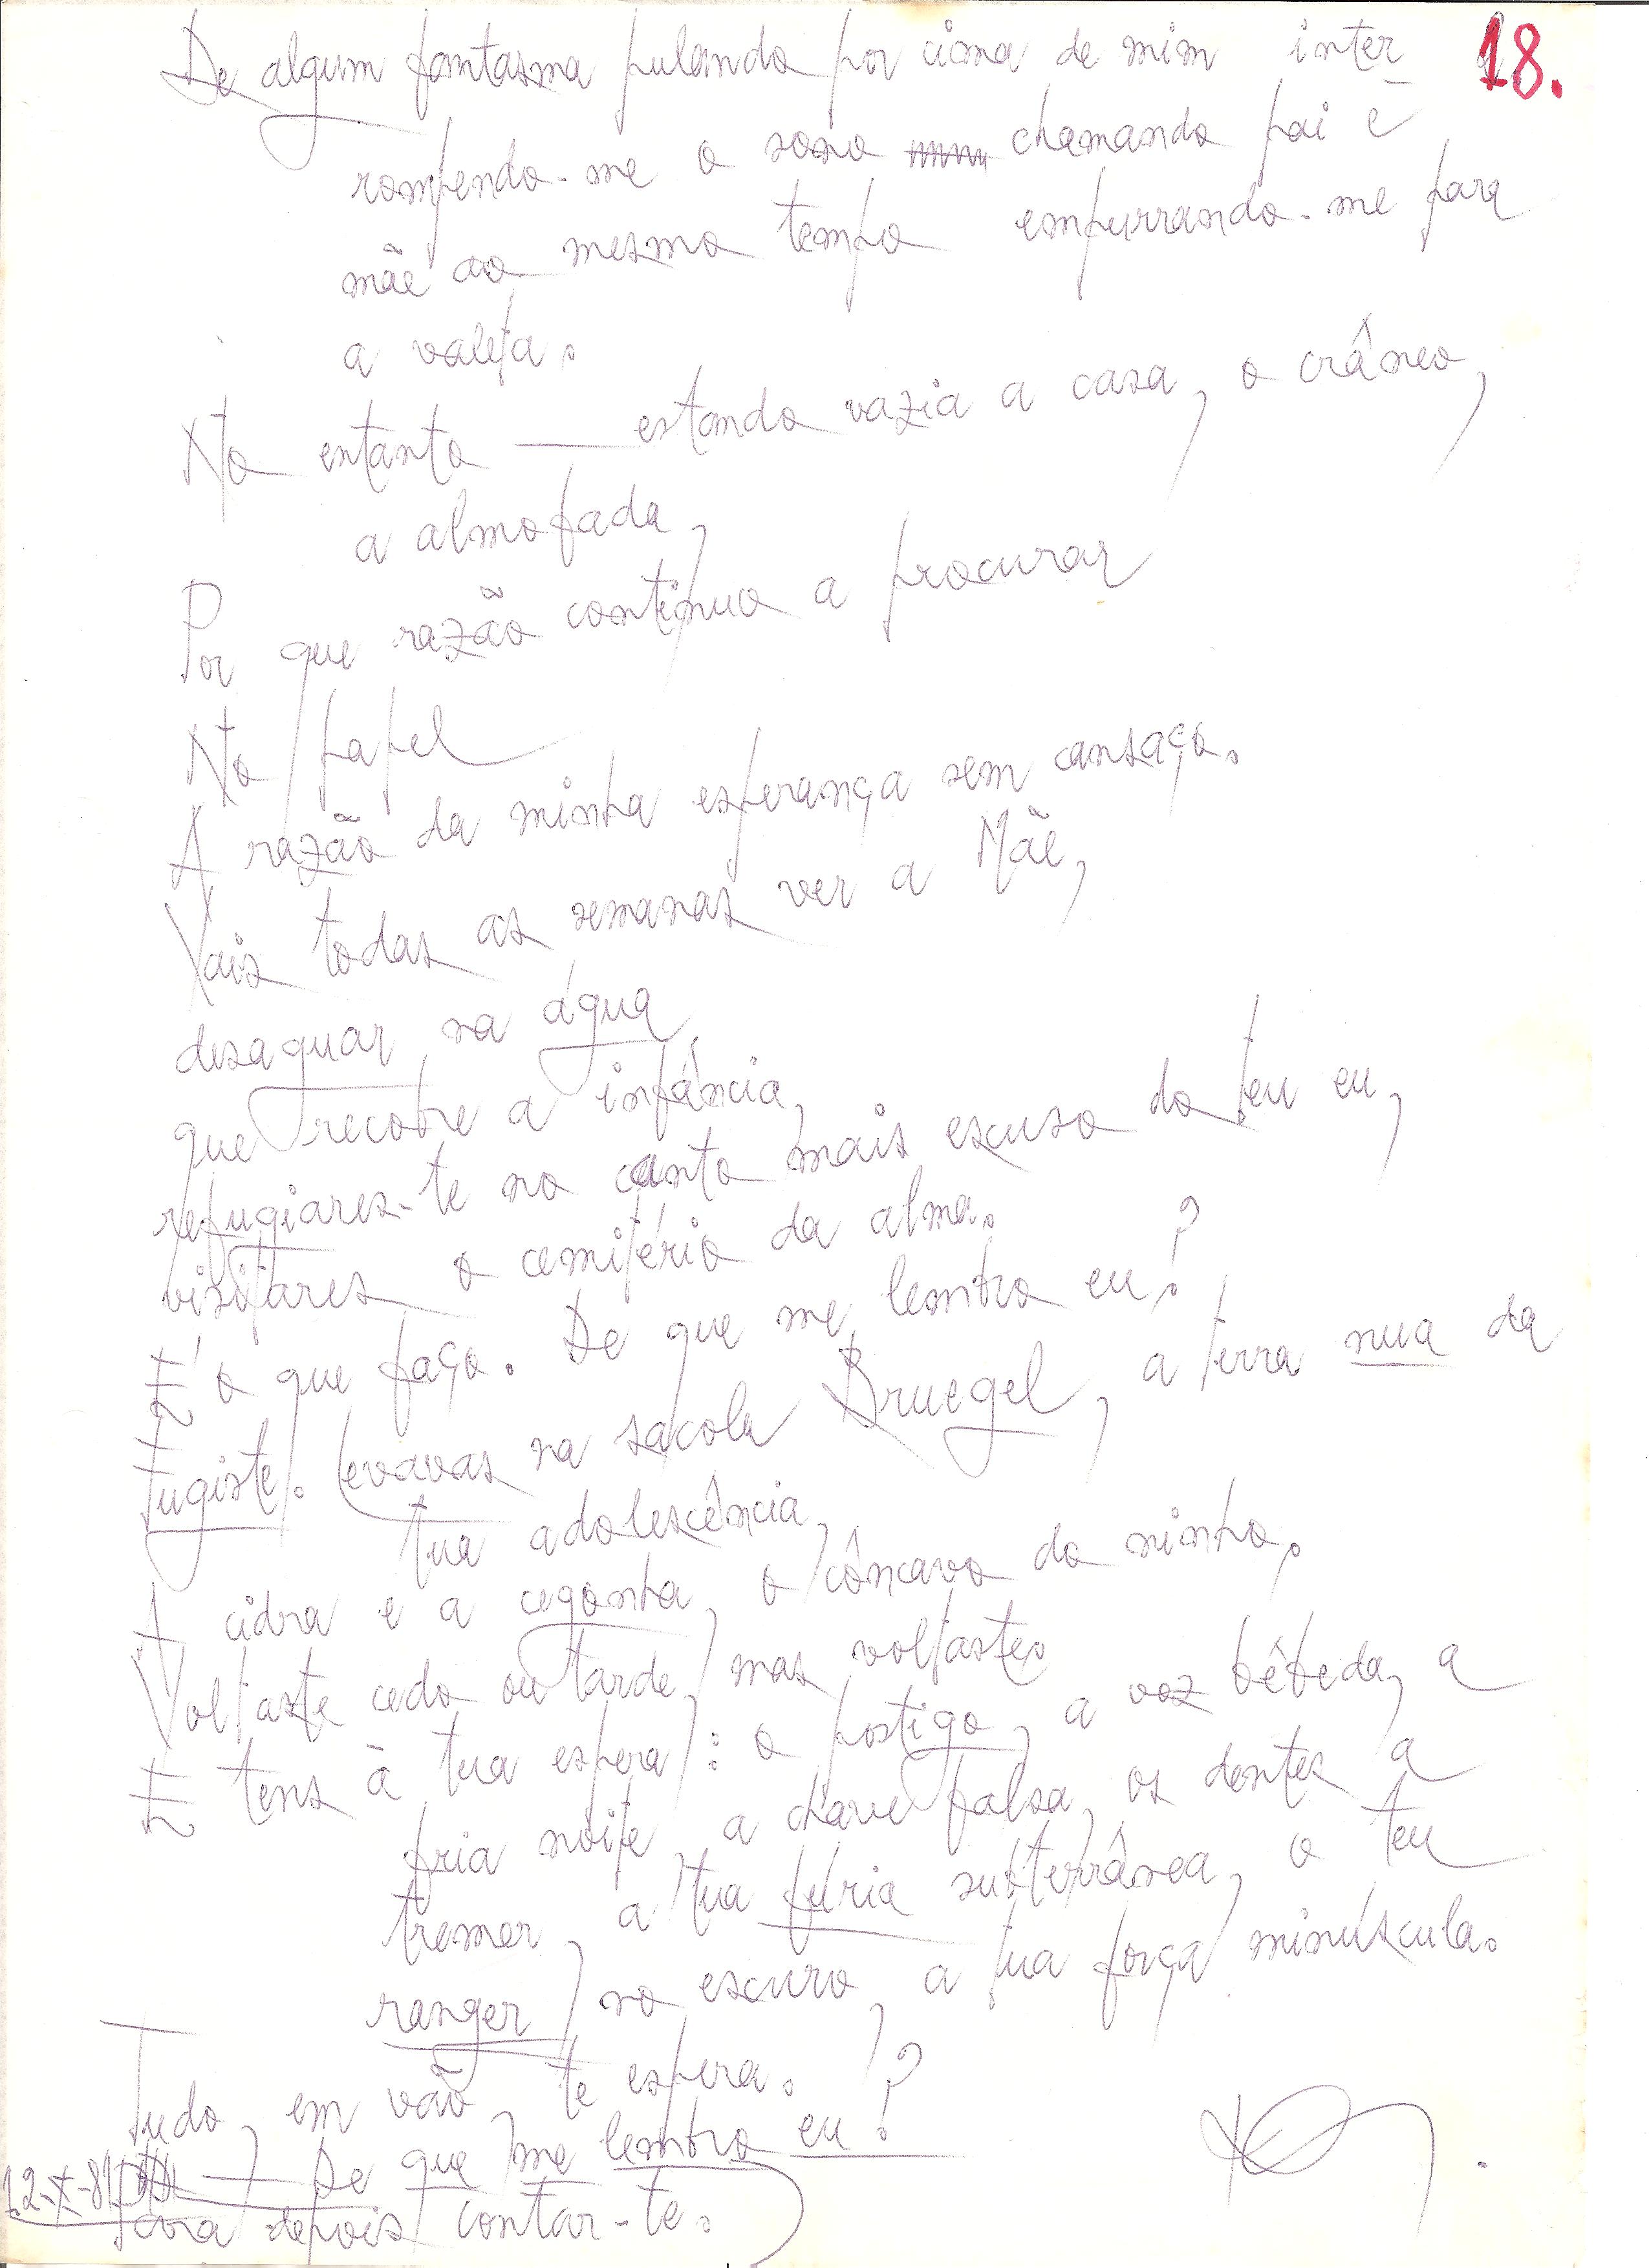 De algum fantasma pulando por cima de mim inter 18.
rompendo-me o sono chamando pai e
mãe ao mesmo tempo empurrando-me para
a valeta.
No entanto — estando vazia a casa, o crâneo,
a almofada,
Por que razão continuo a procurar
No papel
A razão da minha esperança sem cansaço.
Vais todas as semanas ver a Mãe,
desaguar na água
que recobre a infância,
refugiares-te no canto mais escuso do teu eu,
visitares o cemitério da alma.
É o que faço. De que me lembro eu?
Fugiste. Levavas na sacola Bruegel, a terra nua da
tua adolescência,
A cidra e a cegonha, o côncavo do ninho.
Voltaste cedo ou tarde, mas voltaste.
E tens à tua espera: o postigo, a voz bêbeda, a
fria noite, a chave falsa, os dentes a
tremer, a tua fúria subterrânea, o teu
ranger no escuro, a tua força minúscula.
Tudo, em vão, te espera.
— De que me lembro eu?
12-X-81
Para depois contar-te.